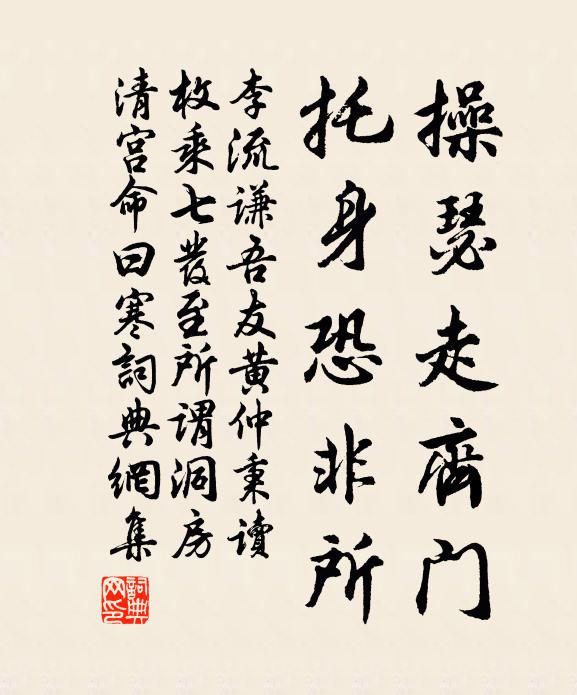 操瑟走齊門
托身恐非所
李流謙吾友黃仲秉讀
枚乘七發至所謂洞房
清宮命曰寒詞典網集
詞典
网印